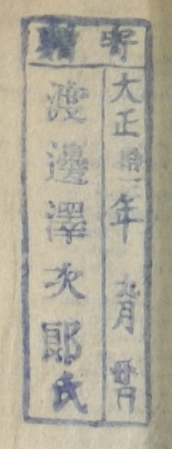 寄贈
大正拾一年九月廿日
渡邊澤次郎氏